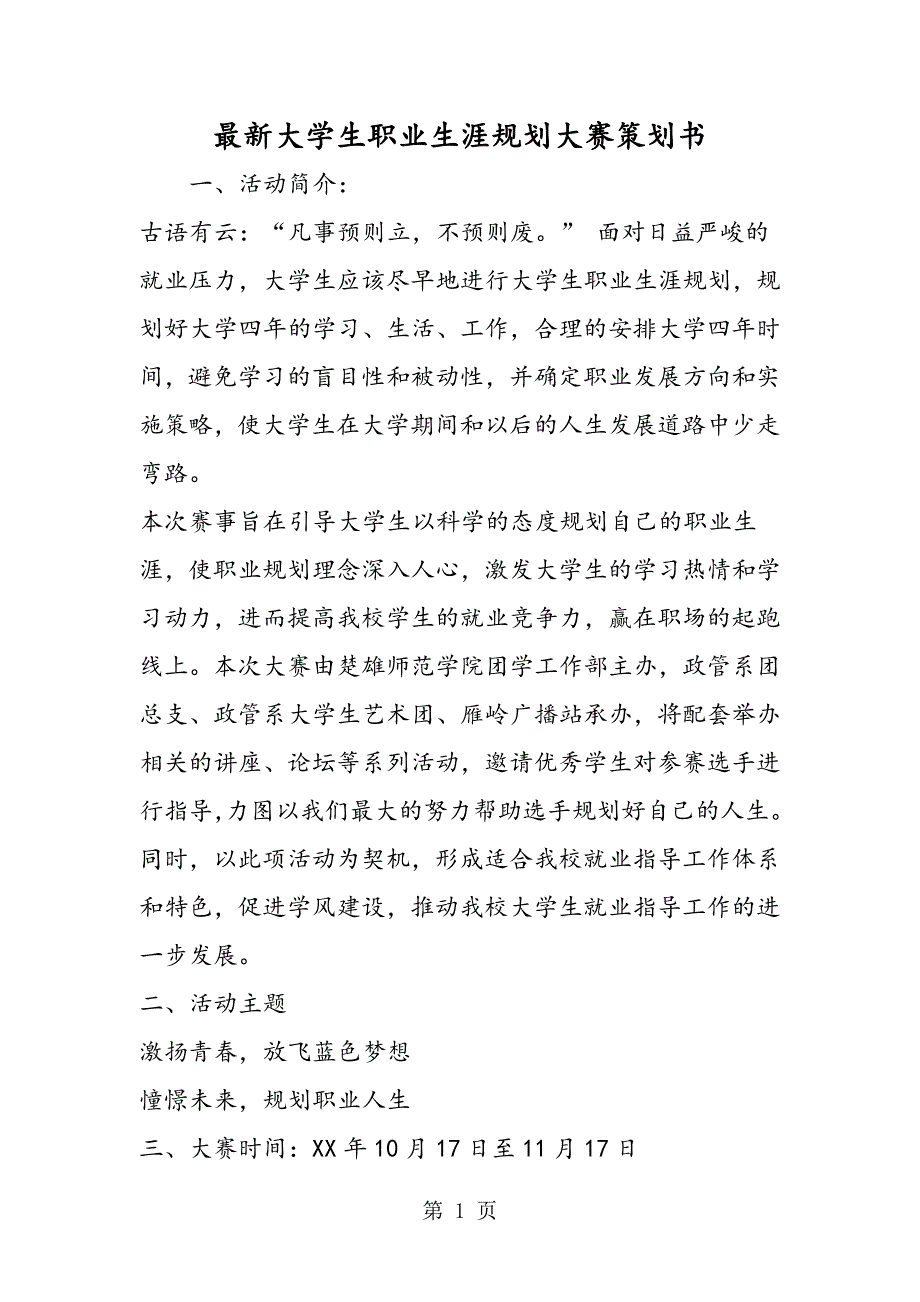 最新大学生职业生涯规划大赛策划书
一、活动简介：
古语有云：“凡事预则立，不预则废。” 面对日益严峻的
就业压力，大学生应该尽早地进行大学生职业生涯规划，规
划好大学四年的学习、生活、工作，合理的安排大学四年时
间，避免学习的盲目性和被动性，并确定职业发展方向和实
施策略，使大学生在大学期间和以后的人生发展道路中少走
弯路。
本次赛事旨在引导大学生以科学的态度规划自己的职业生
涯，使职业规划理念深入人心，激发大学生的学习热情和学
习动力，进而提高我校学生的就业竞争力，赢在职场的起跑
线上。本次大赛由楚雄师范学院团学工作部主办，政管系团
总支、政管系大学生艺术团、雁岭广播站承办，将配套举办
相关的讲座、论坛等系列活动，邀请优秀学生对参赛选手进
行指导，力图以我们最大的努力帮助选手规划好自己的人生。
同时，以此项活动为契机，形成适合我校就业指导工作体系
和特色，促进学风建设，推动我校大学生就业指导工作的进
一步发展。
二、活动主题
激扬青春，放飞蓝色梦想
憧憬未来，规划职业人生
三、大赛时间：XX 年 10 月 17 日至 11 月 17 日
第 1 页